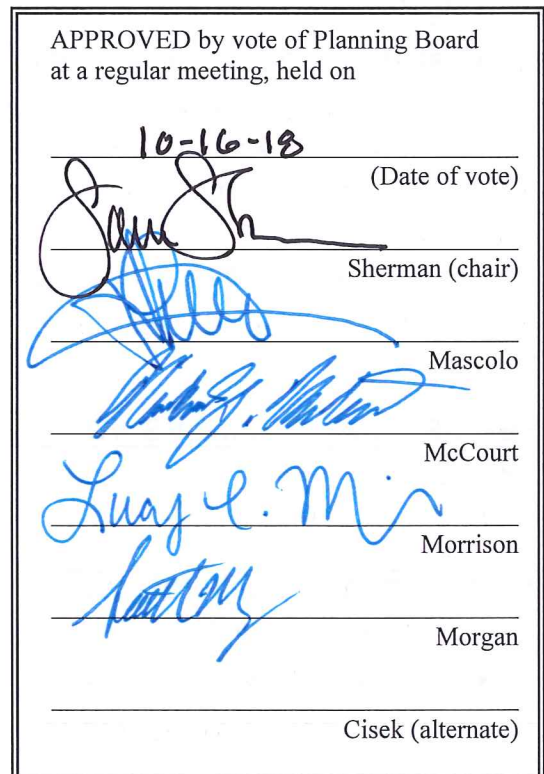 APPROVED by vote of Planning Board
at a regular meeting, held on
10-16-18
(Date of vote)
Sherman (chair)
Mascolo
McCourt
Morrison
Morgan
Cisek (alternate)